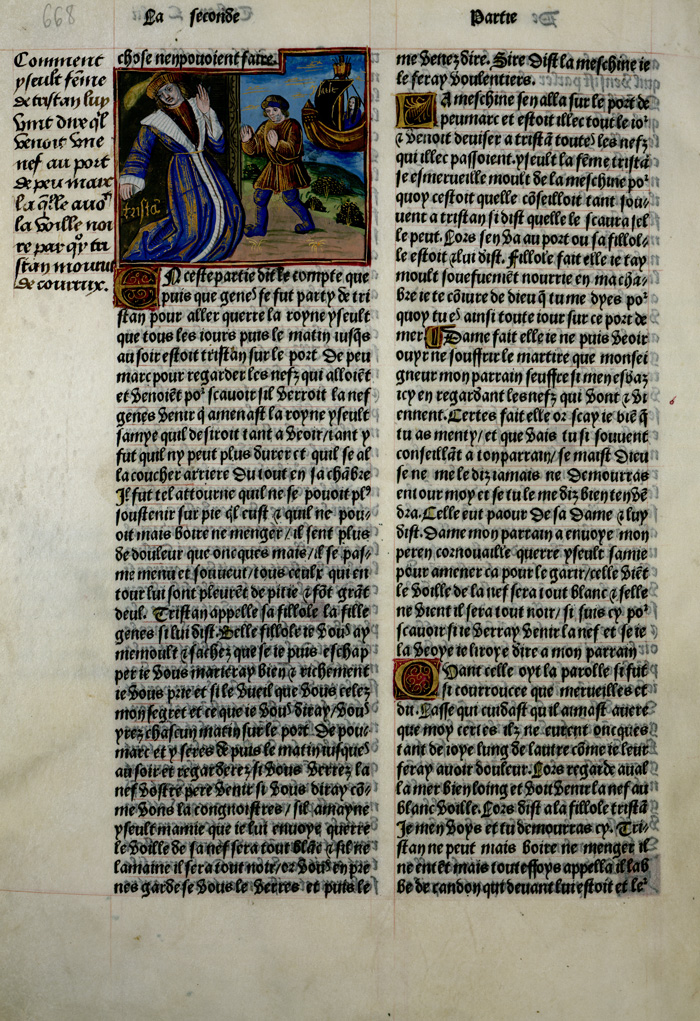 668
La seconde
Partie
Comment
yseult fēme
de tristan luy
vint dire q̄l
venoit vne
nef au port
de peu marc
la q̄lle auoit
la voille noi
re par quoy tri
stan mourut
de courrux.
chose nen pouoient faire.
tristā
EN ceste partie dit le compte que
puis que genes se fut party de tri
stan pour aller querre la royne yseult
que tous les iours puis le matin iusq̄s
au soir estoit tristan sur le port De peu
marc pour regarder les nefz qui alloiēt
et venoiēt po² scauoir sil verroit la nef
genes venir q̄ amenast la royne yseult
samye quil desiroit tant a veoir/tant y
fut quil ny peut plus durer et quil se al
la coucher arriere Du tout en sa chābre
Il fut tel attourne quil ne se pouoit pl⁹
soustenir sur pie q̄l eust ⁊ quil ne pou/
oit mais boire ne menger/il sent plus
de douleur que oncques mais/il se pas/
me menu et souuent/tous ceulx qui en
tour lui sont pleurēt de pitie ⁊ fōt grāt
deul. Tristan appelle sa fillole la fille
genes si lui dist. Belle fillole ie vo⁹ ay
me moult ⁊ sachez que se ie puis eschap
per ie vous marieray bien ⁊ richement
ie vous prie et si le vueil que vous celez
mon segret et ce que ie vo⁹ diray/vo⁹
yrez chascun matin sur le port De peu
marc et y seres de puis le matin iusques
au soir et regarderez si vous verrez la
nef vostre pere venir si vous diray cō/
me vons la congnoistres/sil amayne
yseult mamie que ie lui enuoye querre
le voille de sa nef sera tout blāc ⁊ sil ne
lamaine il sera tout noir/or vo⁹ en pre
nes garde se vous le verres et puis le
me venez dire. Sire dist la meschine ie
le feray voulentiers.
LA meschine sen alla sur le port de
peumarc et estoit illec tout le io²
⁊ venoit deuiser a tristā toutes les nefz
qui illec passoient.yseult la fēme tristā
se esmerueille moult de la meschine po²
quoy cestoit quelle cōseilloit tant sou/
uent a tristan si dist quelle le scaura sel
le peut. Lors sen va au port ou sa fillol/
le estoit ⁊ lui dist. Fillole fait elle ie tay
moult souefuemēt nourrie en ma chā/
bre ie te cōiure de dieu q̄ tu me dyes po²
quoy tu es ainsi toute iour sur ce port de
mer. Dame fait elle ie ne puis veoir
ouyr ne souffrir le martire que monsei
gneur mon parrain seuffre si men esbaz
icy en regardant les nefz qui vont ⁊ vi
ennent. Certes fait elle or scay ie biē q̄
tu as menty/et que vais tu si souuent
conseillāt a ton parrain/se maist Dieu
se ne me le diz iamais ne Demourras
entour moy et se tu le me diz bien ten vē
dra. Celle eut paour De sa Dame ⁊ luy
dist. Dame mon parrain a enuoye mon
pere en cornouaille querre yseult samie
pour amener ca pour le garir/celle viēt
le voille de la nef sera tout blanc ⁊ selle
ne vient il sera tout noir/si suis cy po²
scauoir si ie verray venir la nef et se ie
la veoye ie liroye dire a mon parrain
QUant celle oyt la parolle si fut
si courroucee que merueilles et
dit. Lasse qui cuidast qu il aimast autre
que moy certes ilz ne eurent oncques
tant de ioye lung de lautre cōme ie leur
feray auoir douleur. Lors regarde aual
la mer bien loing et voit venir la nef au
blanc voille. Lors dist a la fillole tristā
Je men voys et tu demourras cy. Tri/
stan ne peut mais boire ne menger il
ne entēt mais toutesfoys appella il lab
be de candon qui deuant lui estoit et le²